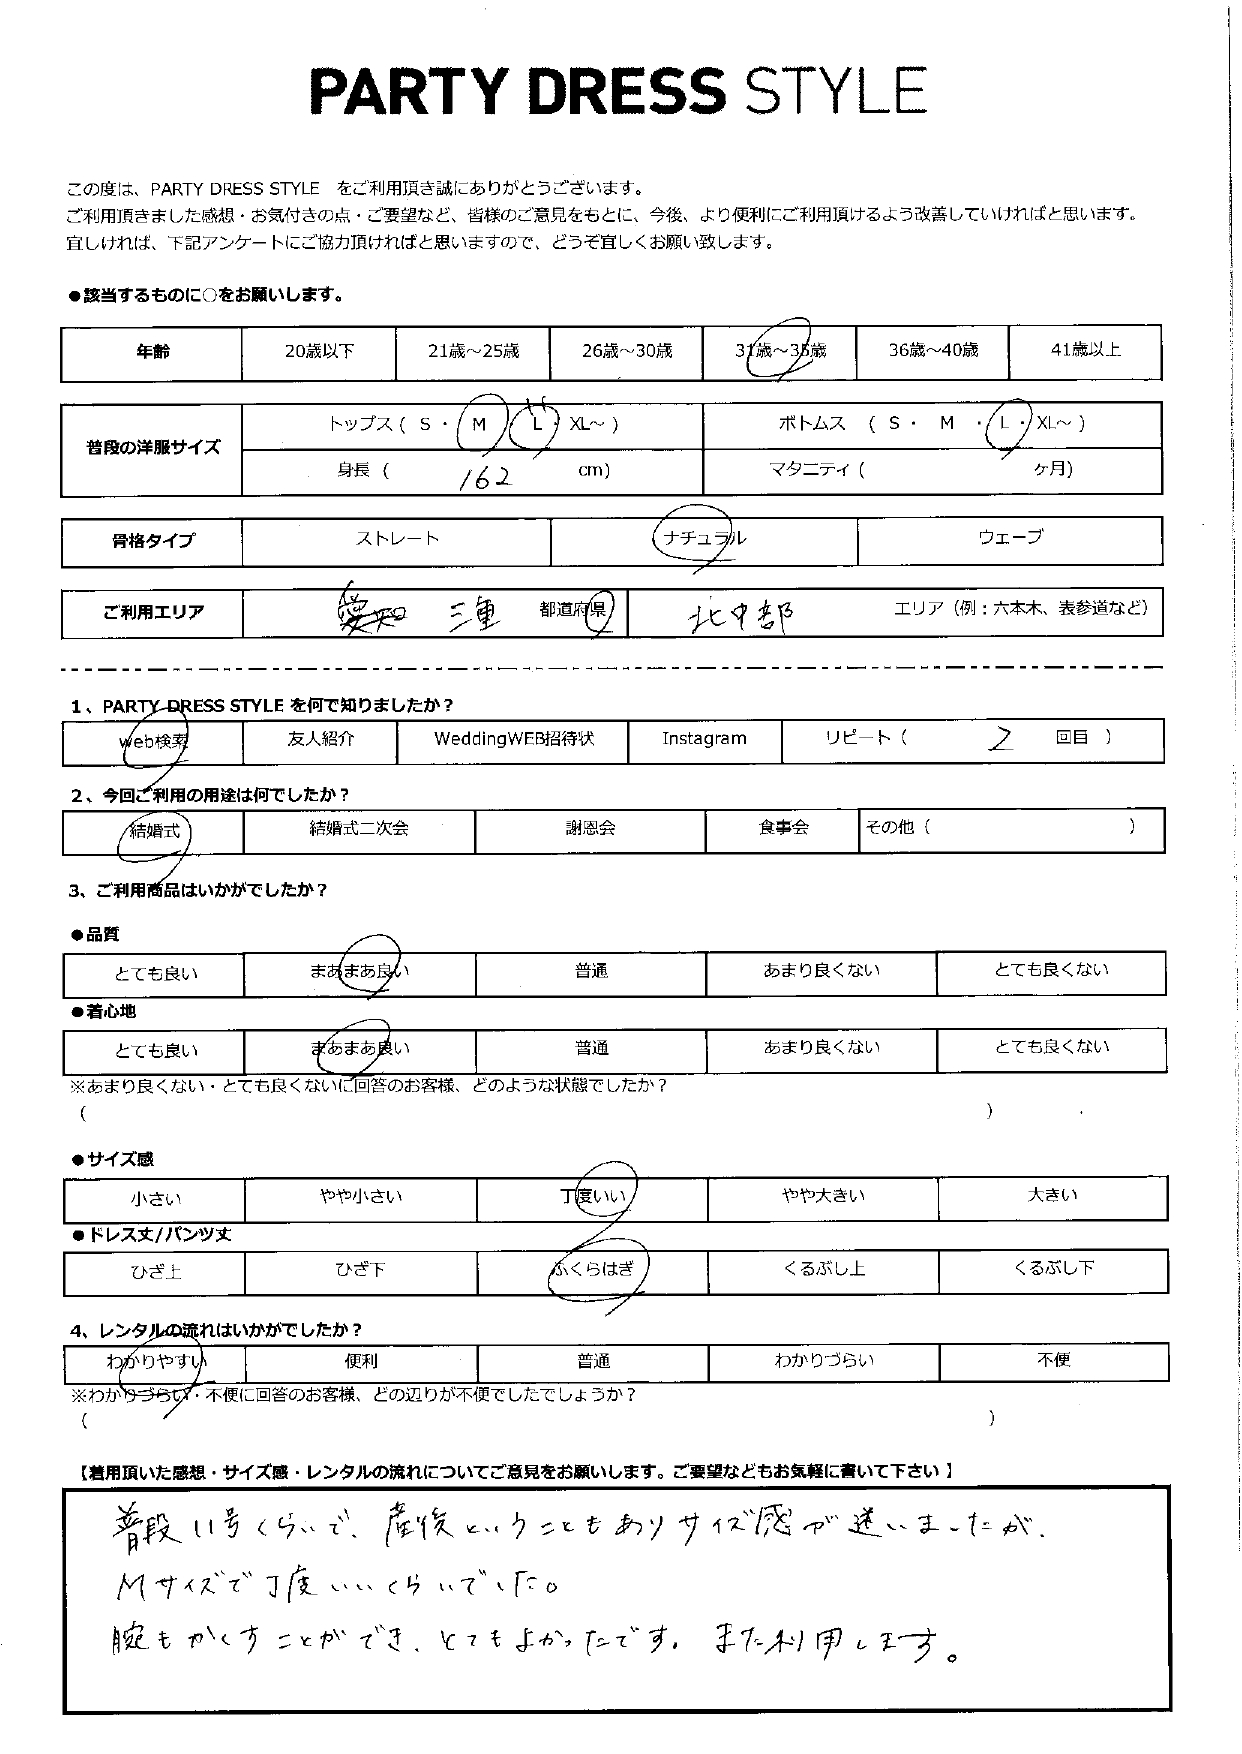 PARTY DRESS STYLE
この度は、PARTY DRESS STYLE をご利用頂き誠にありがとうございます。
ご利用頂きました感想・お気付きの点・ご要望など、皆様のご意見をもとに、今後、より便利にご利用頂けるよう改善していければと思います。
宜しければ、下記アンケートにご協力頂ければと思いますので、どうぞ宜しくお願い致します。
●該当するものに○をお願いします。
年齢 20歳以下 21歳～25歳 26歳～30歳 31歳～35歳 36歳～40歳 41歳以上
普段の洋服サイズ トップス ( S ・ M ・ L ・ XL～ ) ボトムス ( S ・ M ・ L ・ XL～ )
身長 ( 162 cm) マタニティ ( ケ月)
骨格タイプ ストレート ナチュラル ウェーブ
ご利用エリア 愛知 三重 都道府県 北中部 エリア（例：六本木、表参道など）
1、PARTY DRESS STYLE を何で知りましたか？
web検索 友人紹介 WeddingWEB招待状 Instagram リピート（ 2 回目 ）
2、今回ご利用の用途は何でしたか？
結婚式 結婚式二次会 謝恩会 食事会 その他（ ）
3、ご利用商品はいかがでしたか？
●品質
とても良い まあまあ良い 普通 あまり良くない とても良くない
●着心地
とても良い まあまあ良い 普通 あまり良くない とても良くない
※あまり良くない・とても良くないに回答のお客様、どのような状態でしたか？
（ ）
●サイズ感
小さい やや小さい 丁度いい やや大きい 大きい
●ドレス丈/パンツ丈
ひざ上 ひざ下 ふくらはぎ くるぶし上 くるぶし下
4、レンタルの流れはいかがでしたか？
わかりやすい 便利 普通 わかりづらい 不便
※わかりづらい・不便に回答のお客様、どの辺りが不便でしたでしょうか？
（ ）
【着用頂いた感想・サイズ感・レンタルの流れについてご意見をお願いします。ご要望などもお気軽に書いて下さい 】
普段11号くらいで、産後ということもありサイズ感が迷いましたが、
Mサイズで丁度いいくらいでした。
腕もかくすことができ、とてもよかったです。また利用します。